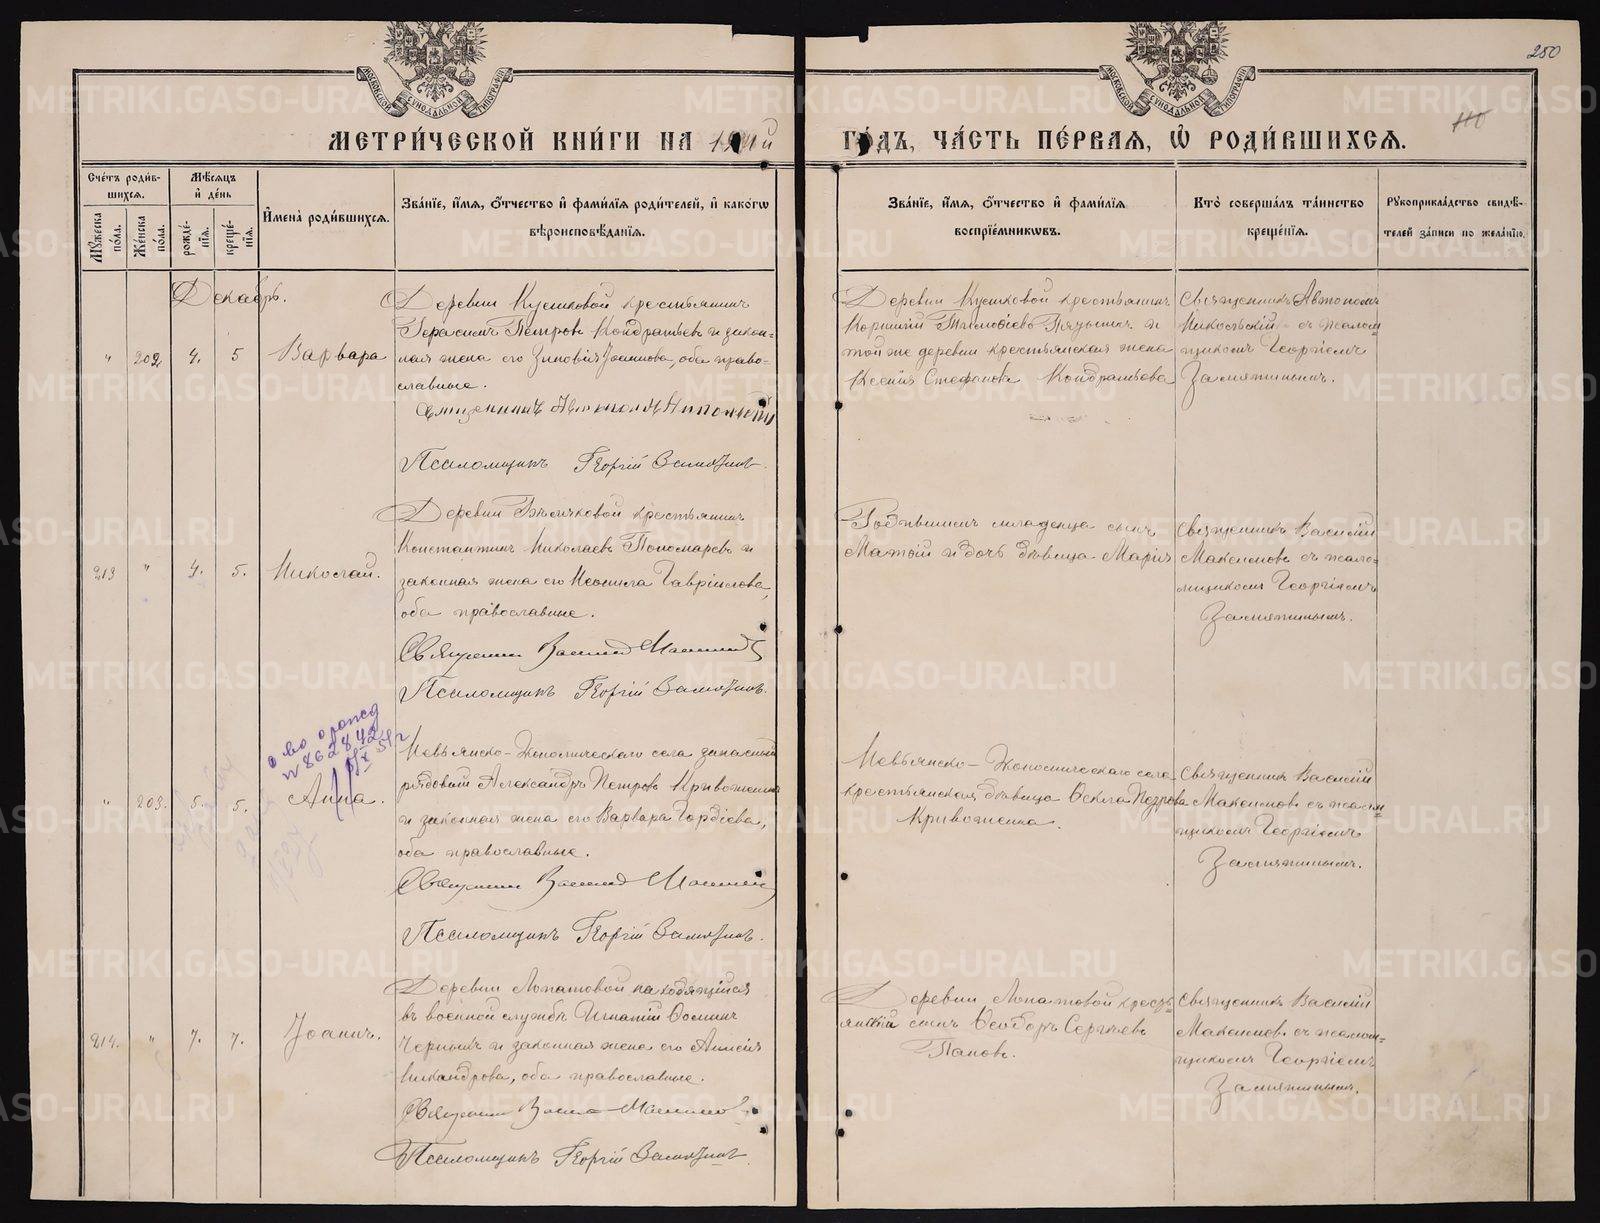 250
МОСКОВСКОЙ СѴНОДАЛЬНОЙ ТИПОГРАФІИ
МОСКОВСКОЙ СѴНОДАЛЬНОЙ ТИПОГРАФІИ
МЕТРИ́ЧЕСКОЙ КНИ́ГИ НА
ГО́ДЪ, ЧА́СТЬ ПЕ́РВАЯ, Ѽ РОДИ́ВШИХСЯ.
Сче́тъ роди́в-
шихся.
Мѣ́сяцъ
и҆ де́нь
Мꙋ́жеска по́ла.
Же́нска по́ла.
рожде́-нїя.
креще́-нїя.
И҆мена̀ роди́вшихся.
Зва́нїе, и҆́мя, ѻ҆́тчество и҆ фами́лїя роди́телей, и҆ како́гѡ
вѣроисповѣ́данїя.
Зва́нїе, и҆́мя, ѻ҆́тчество и҆ фами́лїя
воспрїе́мникѡвъ.
Кто̀ соверша́лъ та́инство
креще́нїя.
Рꙋкоприкла́дство свидѣ́-
телей за́писи по жела́нїю.
Декабрь.
" 202 4. 5 Варвара
Деревни Кушковой крестьянинъ
Герасимъ Петровъ Кондратьевъ и закон-
ная жена его Зиновія Іоаннова, оба право-
славные.
Священникъ Автономъ Никольскій
Псаломщикъ Георгій Замятинъ.
Деревни Кушковой крестьянинъ
и
той же деревни крестьянская жена
Ксенія Стефанова Кондратьева
Священникъ Автономъ
Никольскій съ псалом
щикомъ Георгіемъ
Замятинымъ.
213 " 4. 5. Николай.
Деревни крестьянинъ
Константинъ Николаевъ Пономаревъ и
законная жена его Неонила Гавріилова,
оба православные.
Священникъ Василій Максимовъ
Псаломщикъ Георгій Замятинъ.
Родившимся младенца сынъ
и дочь дѣвица Марія
Священникъ Василій
Максимовъ съ псало-
мщикомъ Георгіемъ
Замятинымъ.
" 203. 5. 5. Анна.
Невьянско-Экономическаго села запасный
рядовой Александръ Петровъ
и законная жена его Варвара Гордіева,
оба православные.
Священникъ Василій Максимовъ
Псаломщикъ Георгій Замятинъ.
Невьянско-Экономическаго села
крестьянская дѣвица Ѳекла Петрова
Священникъ Василій
Максимовъ съ псалом
щикомъ Георгіемъ
Замятинымъ.
214. " 7. 7. Іоаннъ.
Деревни Лопатовой находящійся
въ военной службѣ Игнатій Ѳоминъ
Черныхъ и законная жена его
Никандрова, оба православные.
Священникъ Василій Максимовъ
Псаломщикъ Георгій Замятинъ
Деревни Лопатовой кресть
янскій сынъ Ѳеодоръ Сергѣевъ
Пановъ.
Священникъ Василій
Максимовъ съ псалом-
щикомъ Георгіемъ
Замятинымъ.
METRIKI.GASO-URAL.RU